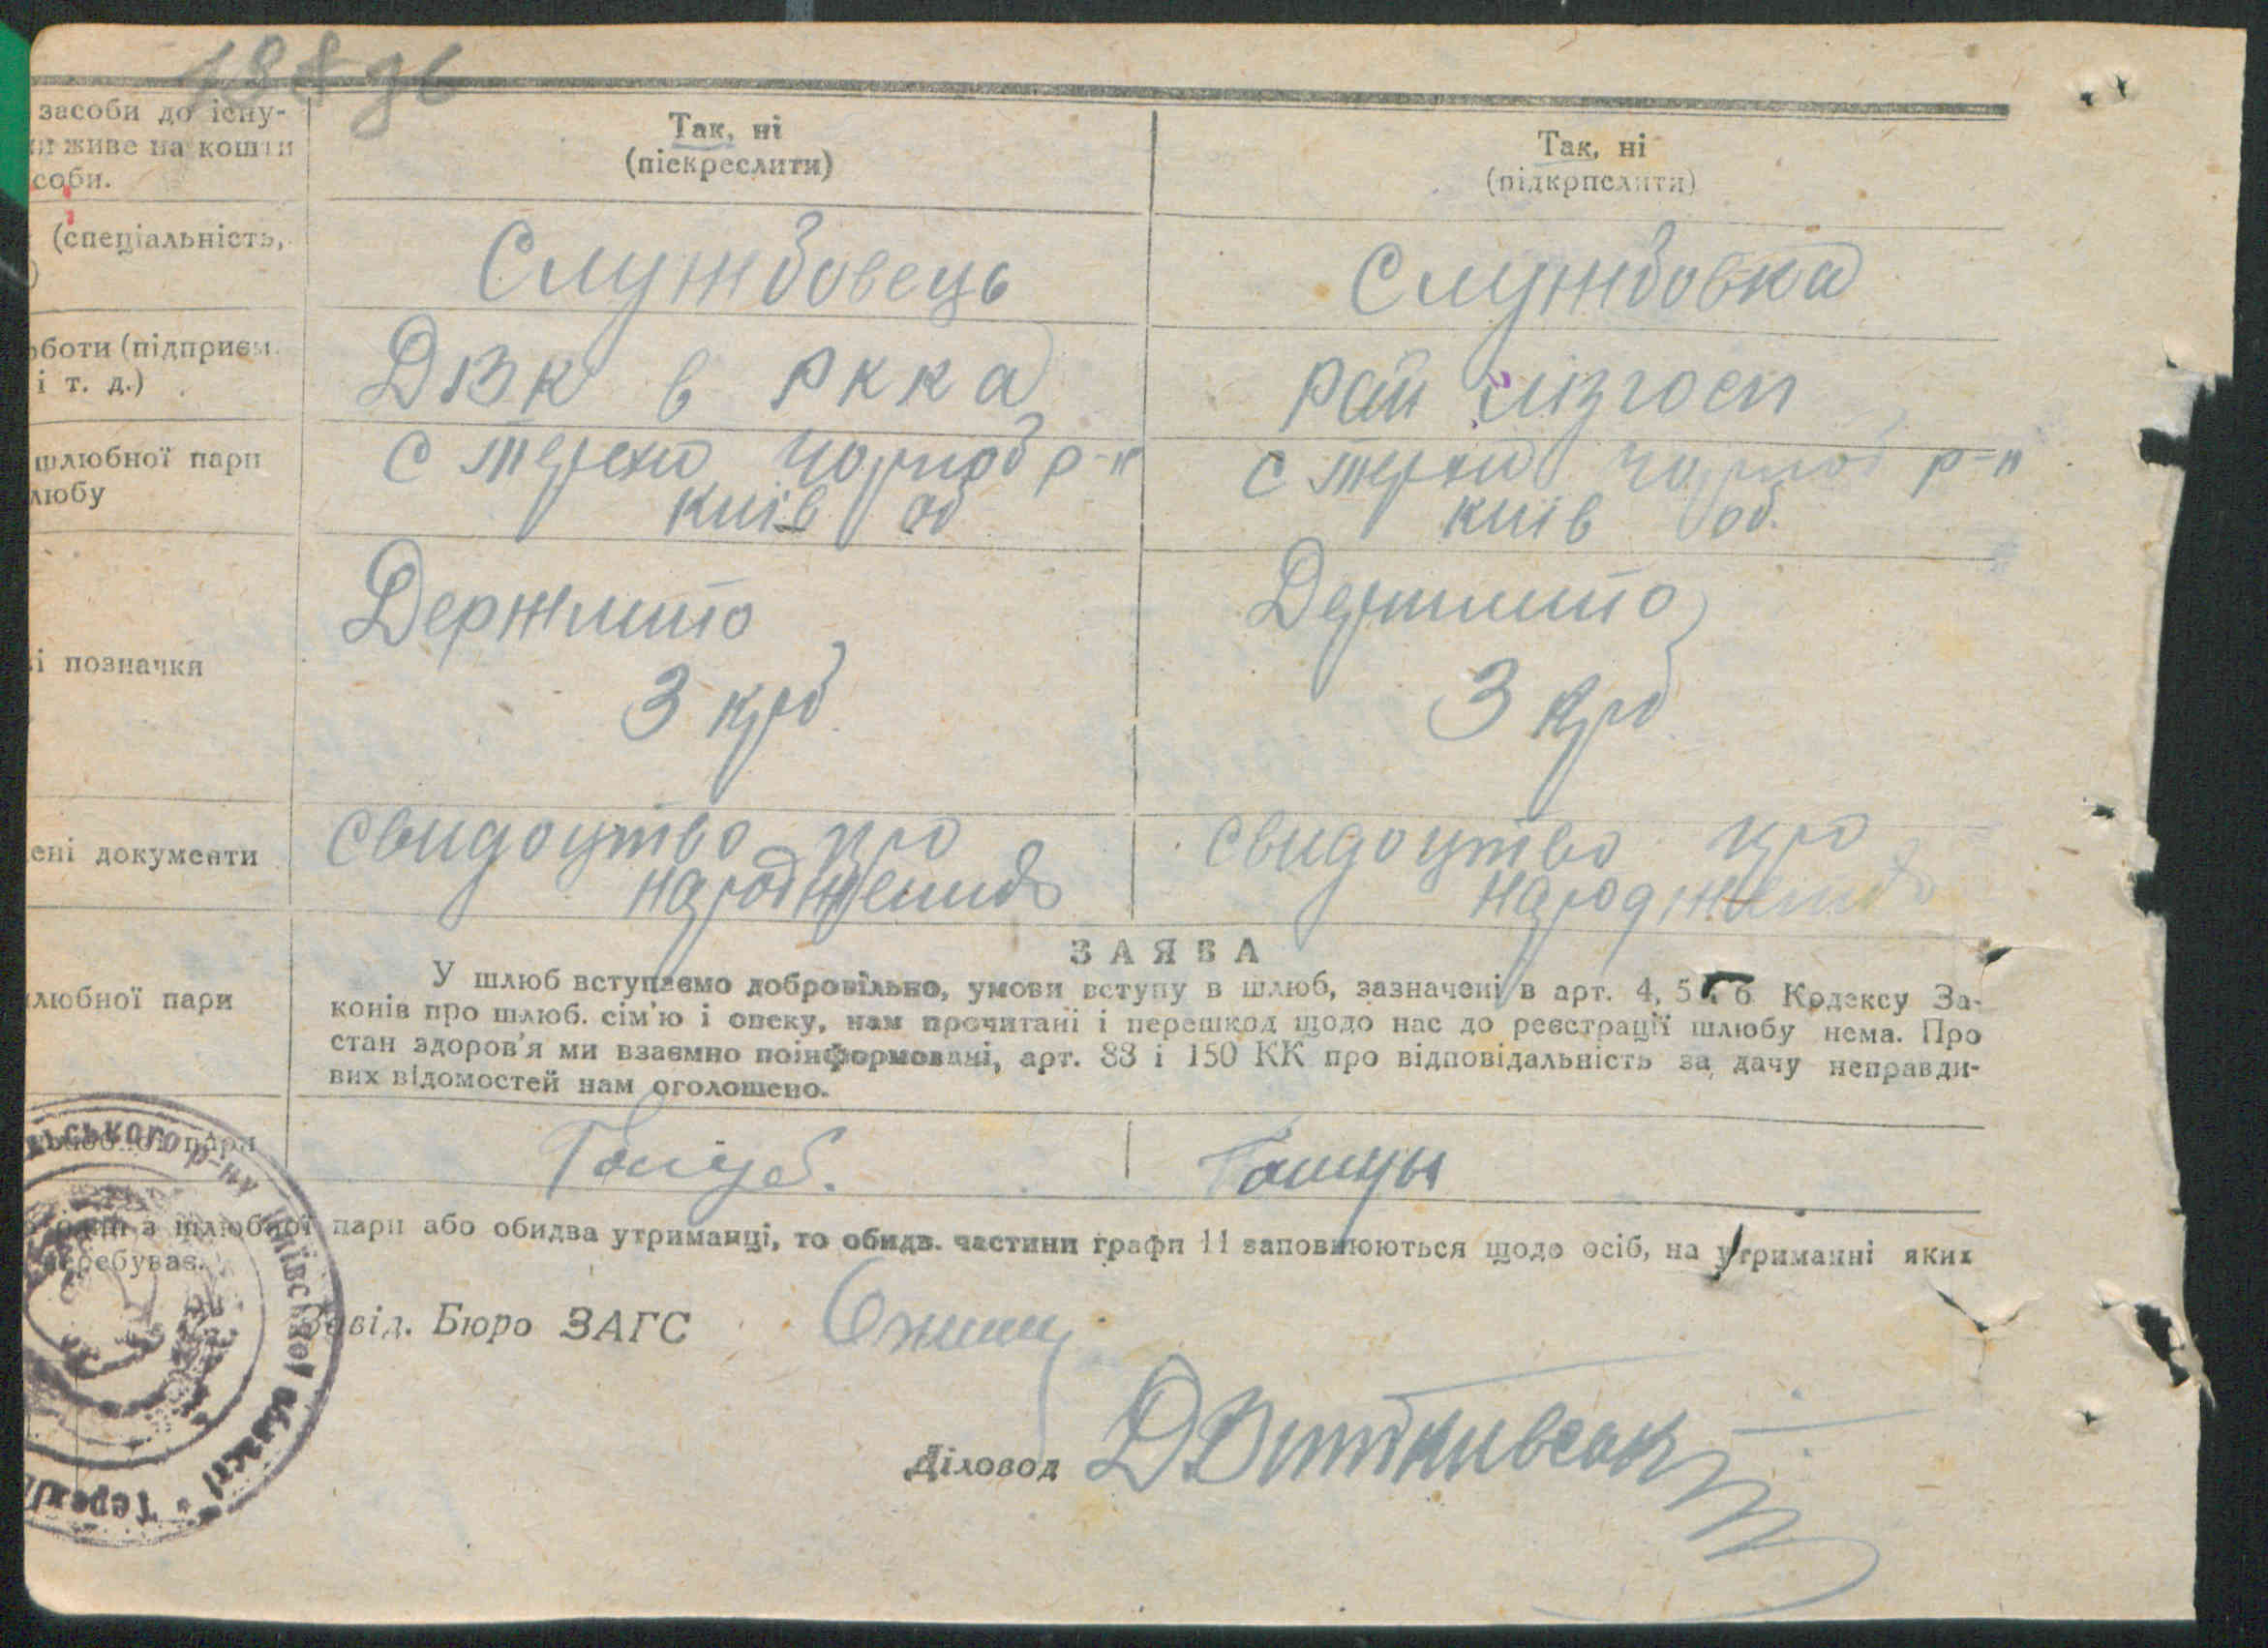 засоби до існу-
живе на кошти
соби.
Так, ні
(піскреслити)
Так, ні
(підкрпслити)
(спеціальність,
)
Службовець
Службовка
оботи (підприєм.
і т. д.)
в РККА
рай
шлюбної пари
любу
с Терехи Чорноб р-н
Київ об
с Терехи Чорноб р-н
Київ об.
і позначки
Держмито
3 крб
Держмито
3 крб
ені документи
свидоцтво про
народження
свидоцтво про
народження
любної пари
ЗАЯВА
У шлюб вступаємо добровільно, умови вступу в шлюб, зазначені в арт. 4, 5 і 6 Кодексу За-
конів про шлюб. сім'ю і опеку, нам прочитані і перешкод щодо нас до реєстрації шлюбу нема. Про
стан здоров'я ми взаємно поінформовані, арт. 88 і 150 КК про відповідальність за дачу неправди-
вих відомостей нам оголошено.
пари
Голуб.
один з шлюбної пари або обидва утриманці, то обидв. частини графи 11 заповнюються щодо осіб, на утриманні яких
перебуває.
Завід. Бюро ЗАГС
Діловод
ського р-ну Київської області * Терех